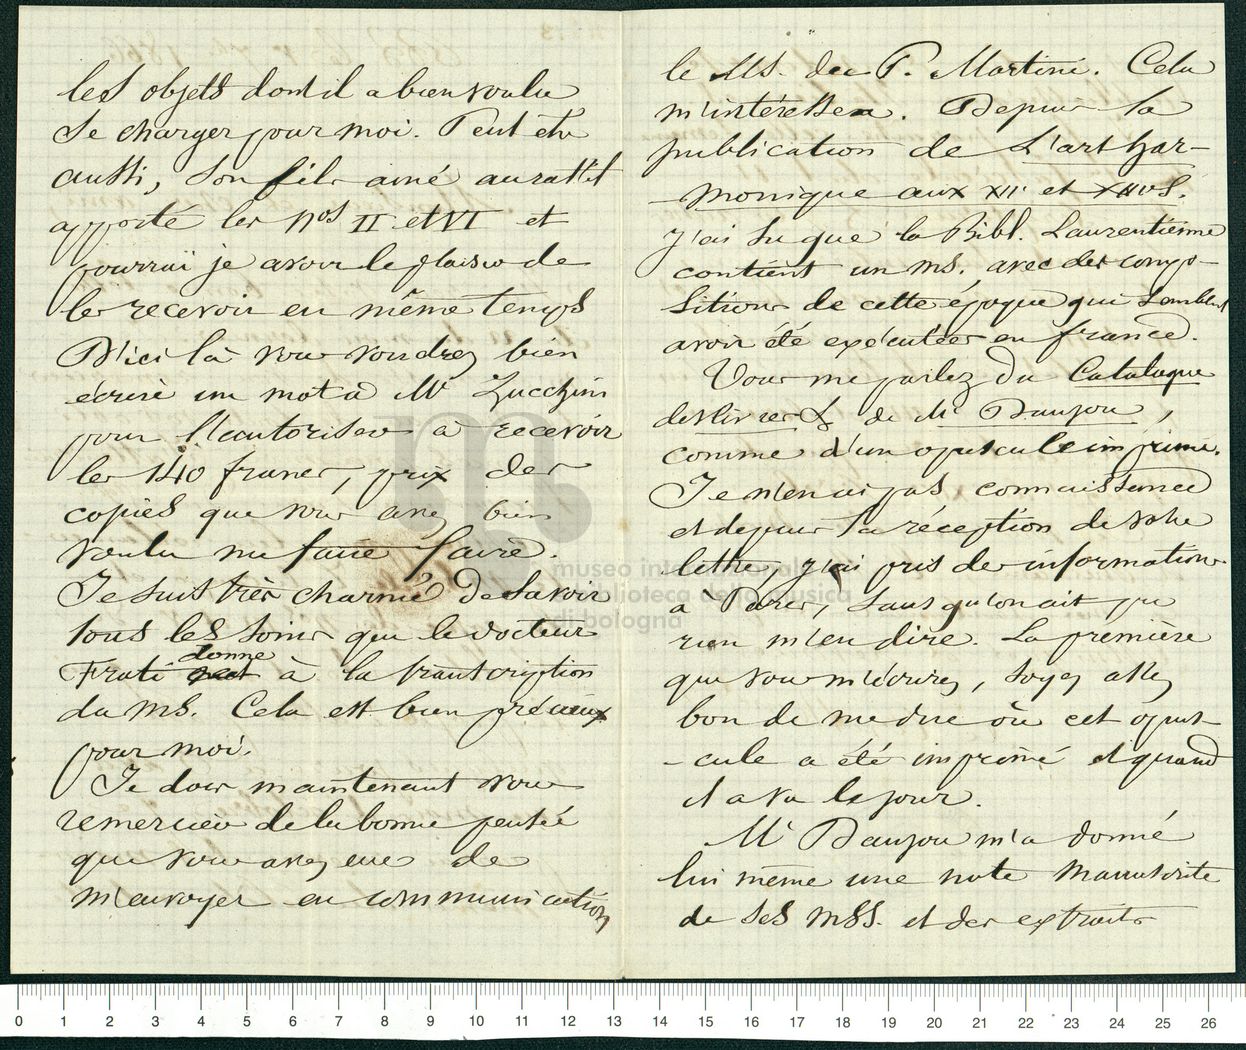 les objets dont il a bien voulu
se charger pour moi. Peut etre
aussi, son fils ainé aurait il
apporté les nos II et VI et
pourrai je avoir le plaisir de
les recevoir en même temps
D'ici là vous voudrez bien
écrire un mot à Mr Zucchini
pour l'autoriser à recevoir
les 140 francs, prix des
copies que vous avez bien
voulu me faire faire.
Je suis très charmé de savoir
tous les soins que le docteur
Frati donne à la transcription
du ms. Cela est bien précieux
pour moi.
Je dois maintenant vous
remercier de la bonne pensée
que vous avez eue de
m'envoyer en communication
le MS. du P. Martini. Cela
m'intéressera. Depuis la
publication de L'art har-
monique aux XIIe et XIIIe S.
j'ai su que la Bibl. Laurentienne
contient un ms. avec des compo-
sitions de cette époque qui semblent
avoir été exécutées en france.
Vous me parlez du Catalogue
des livres & de Mr Danjou,
comme d'un opuscule imprimé.
Je n'en ai pas connaissance
et depuis la réception de votre
lettre, j'ai pris des informations
à Paris, sans qu'on ait pu
rien m'en dire. La première
que vous m'écrirez, soyez assez
bon de me dire où cet opus-
-cule a été imprimé et quand
il a vu le jour.
Mr Danjou m'a donné
lui même une note manuscrite
de ses MSS. et des extraits
museo internazionale
e biblioteca della musica
di bologna
0 1 2 3 4 5 6 7 8 9 10 11 12 13 14 15 16 17 18 19 20 21 22 23 24 25 26